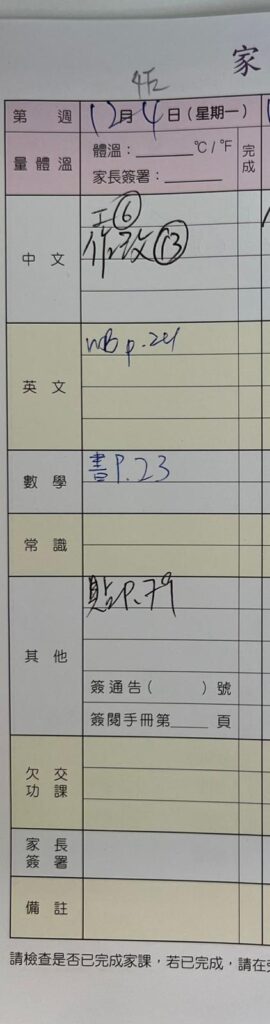 家
第 週 12月4日(星期一)
量體溫 體溫：______ °C / °F 完成
家長簽署：______
中文 工⑥
作改⑬
英文 WB p.24
數學 書P.23
常識
其他 貼P.79
簽通告( )號
簽閱手冊第____頁
欠交功課
家長簽署
備註
請檢查是否已完成家課，若已完成，請在